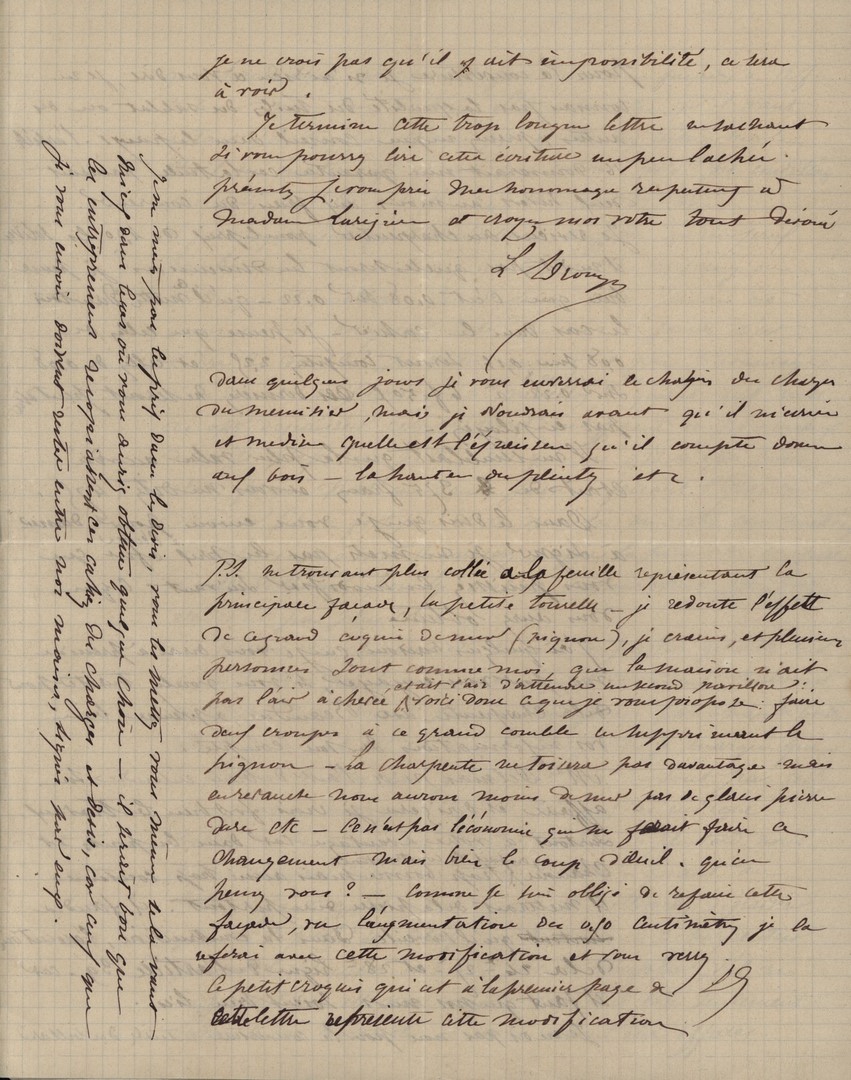 je ne crois pas qu'il y ait impossibilité, ce sera
à voir.
Je termine cette trop longue lettre en sachant
si vous pourrez lire cette écriture un peu lachée.
présentez je vous prie mes hommages respectueux à
Madame et croyez moi votre tout dévoué
L Drouyn
dans quelques jours je vous enverrai le cahier des charges
du menuisier, mais je voudrais avant qu'il m'écrive
et me dise quelle est l'épaisseur qu'il compte donner
aux bois – la hauteur des plinthes etc.
P.S. ne trouvant plus collée à la feuille représentant la
principale façade, la petite tourelle – je redoute l'effet
de ce grand coquin de mur (pignon), je crains, et plusieurs
personnes sont comme moi que la maison n'ait
et ait l'air d'attendre un second pavillon :
pas l'air achevée voici donc ce que je vous propose : faire
deux croupes à ce grand comble en supprimant le
pignon – la charpente ne toisera pas davantage mais
en revanche nous aurons moins de mur pas de glacis pierre
dure etc – ce n'est pas l'économie qui me ferait faire ce
changement mais bien le coup d'œil. qu'en
pensez vous ? – comme je suis obligé de refaire cette
façade, vu l'augmentation des 0,90 centimètres je la
referai avec cette modification et vous verrez.
Ce petit croquis qui est à la première page de LD
cette lettre représente cette modification
Je ne mets pas les prix dans les devis, vous les mettrez vous même cela vaut
mieux dans le cas où vous auriez obtenu quelque chose – il serait bon que
les entrepreneurs recopiassent ces cahiers des charges et devis, car ceux que
je vous envoie doivent rester entre nos mains, signés par eux.